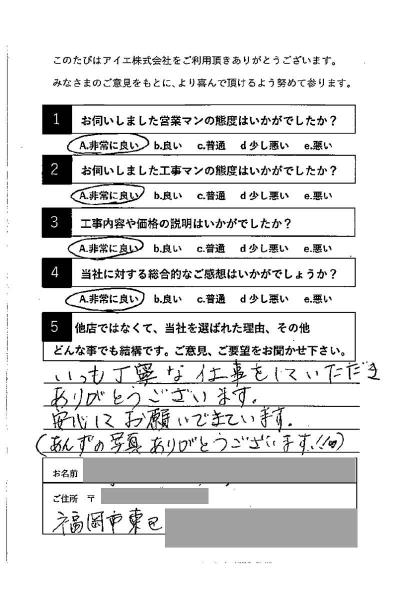 このたびはアイエ株式会社をご利用頂きありがとうございます。
みなさまのご意見をもとに、より喜んで頂けるよう努めて参ります。
1 お伺いしました営業マンの態度はいかがでしたか？
A.非常に良い b.良い c.普通 d 少し悪い e.悪い
2 お伺いしました工事マンの態度はいかがでしたか？
A.非常に良い b.良い c.普通 d 少し悪い e.悪い
3 工事内容や価格の説明はいかがでしたか？
A.非常に良い b.良い c.普通 d 少し悪い e.悪い
4 当社に対する総合的なご感想はいかがでしょうか？
A.非常に良い b.良い c.普通 d 少し悪い e.悪い
5 他店ではなくて、当社を選ばれた理由、その他
どんな事でも結構です。ご意見、ご要望をお聞かせ下さい。
いつも丁寧な仕事をしていただき
ありがとうございます。
安心してお願いできています。
(あんずの写真ありがとうございます!!)
お名前
ご住所 〒
福岡市東区